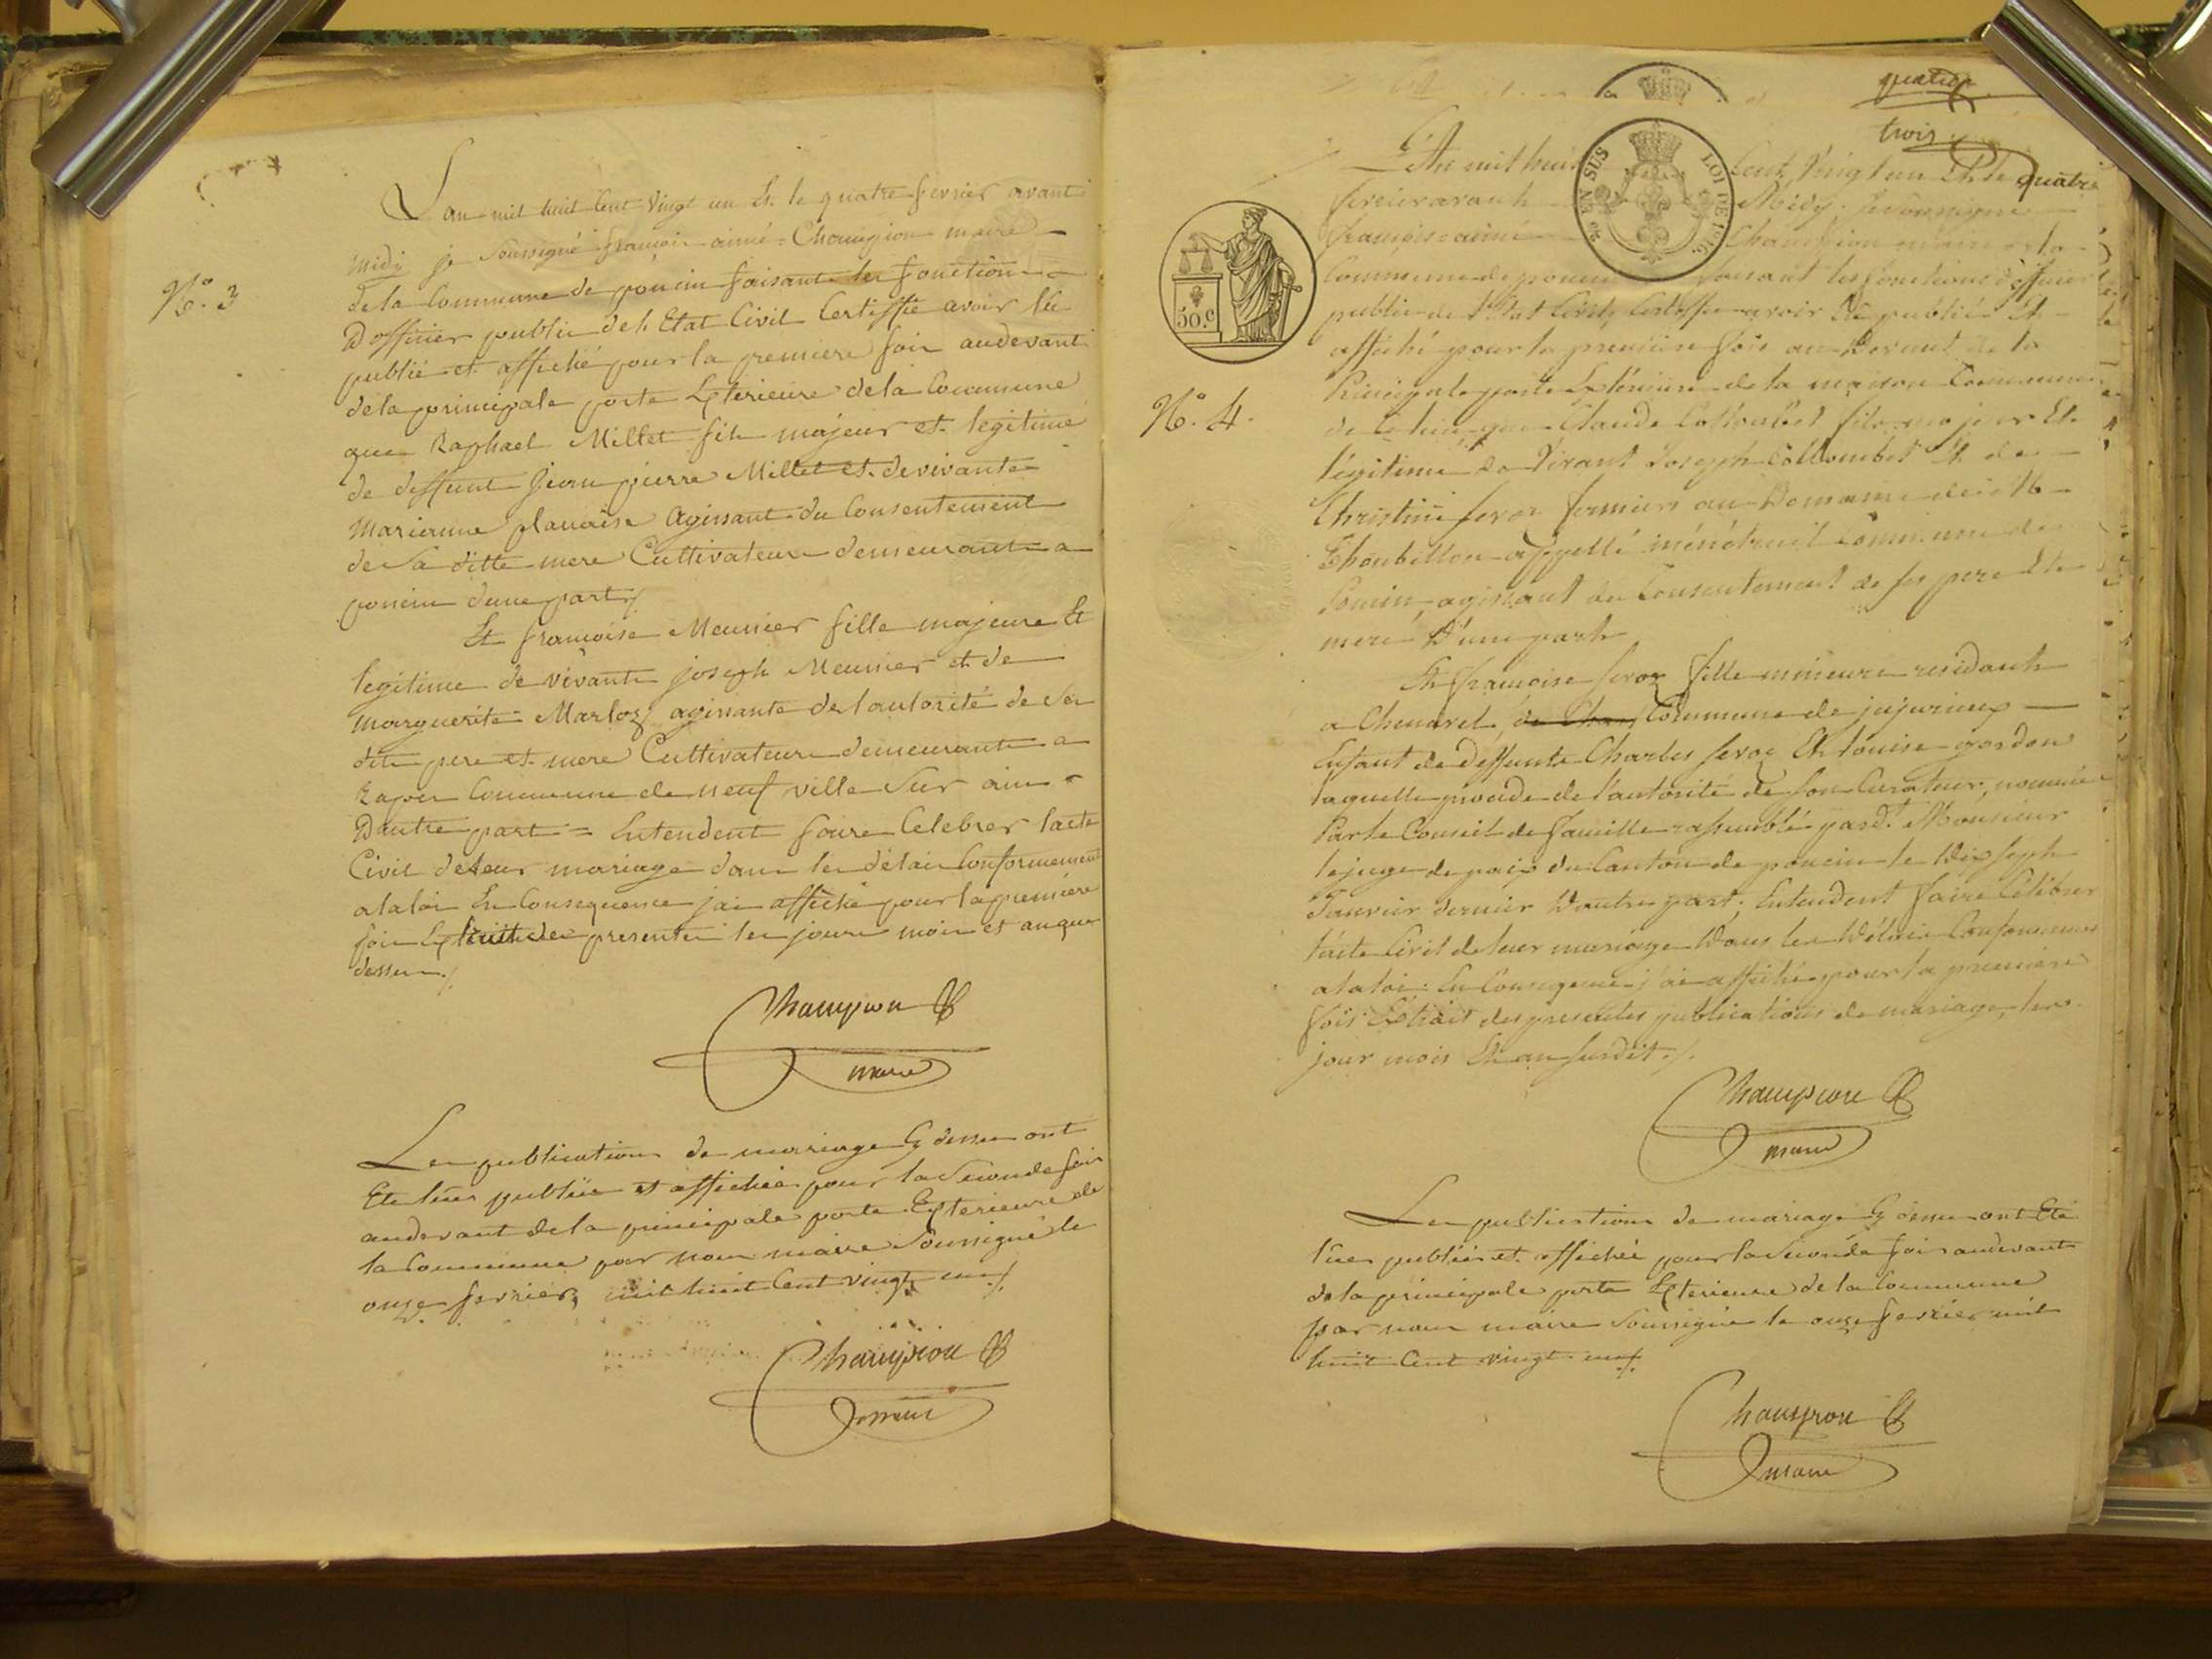 N.o 3
L'an mil huit Cent vingt un Et. le quatre fevrier avant
midy je soussigné françois aimé = Champion maire
de la Commune de poncin faisant les fonctions
D'officier public de l'Etat Civil Certiffie avoir lû
publié et affiché pour la premiere fois audevant
de la principale porte Exterieure de la Commune
que Raphael Millet fils majeur et legitime
de deffunt Jean pierre Millet et de vivante
Marianne Agissant du Consentement
de Sa ditte mere Cultivateurs demeurants a
poncin d'une part
Et françoise Meunier fille majeure Et
legitime de vivants joseph Meunier et de
marguerite Marloz agissante de l'autorité de Ses
dits pere et mere Cultivateurs demeurants a
Commune de neuf ville Sur ain
D'autre part = Entendent faire Celebrer l'acte
Civil de leur mariage dans les délais Conformement
a la loi En Consequence j'ai affiché pour la premiere
fois Extrait des presentes les jours mois et an que
dessus ./.
Champion
maire
Les publications de mariage Cy dessus ont
Eté lues publiées et affichées pour la Seconde fois
audevant de la principale porte Exterieure de
la Commune par nous maire Soussigné le
onze fevrier, mil huit Cent vingt un ./.
Champion
maire
quatre
trois
20 EN SUS LOI DE 1816
50.c
N.o 4.
L'An mil huit Cent Vingt un Et le quatre
fevrier avant Midy, Je Soussigné
françois = aimé Champion maire de la
Commune de poncin faisant les fonctions d'officier
public de l'Etat Civil, Certiffie avoir Lû publié Et
affiché pour la premiere fois au Devant de la
Principale porte Extérieure de la maison Commune
de Ce lieu que Claude Collombet fils majeur Et
légitime de Vivant Joseph Collombet Et de
Christine feroz fermiers au Domaine de
appellé Commune de
Poncin, agissant du Consentement de Ses pere Et
mere D'une part
Et françoise feroz fille mineure residant
a Chenavel, de Cha Commune de jujurieux
Enfant de deffunts Charles feroz Et louise gordon
laquelle procede de l'autorité de Son Curateur, nommé
Par le Conseil de famille rassemblé par d.t Monsieur
le juge de paix du Canton de poncin le Dix Sept
Janvier dernier D'autre part; Entendent faire Célébrer
l'acte Civil de leur mariage Dans les Délais Conformement
a la loi: En Consequence j'ai affiché pour la premiere
fois Extrait des presentes publications de mariage, les
jour mois Et an Susdit ./.
Champion
maire
Les publications de mariage Cy dessus ont Eté
lues publiées et affichées pour la Seconde fois audevant
de la principale porte Exterieure de la Commune
par nous maire Soussigné le onze fevrier mil
huit Cent vingt un ./.
Champion
maire